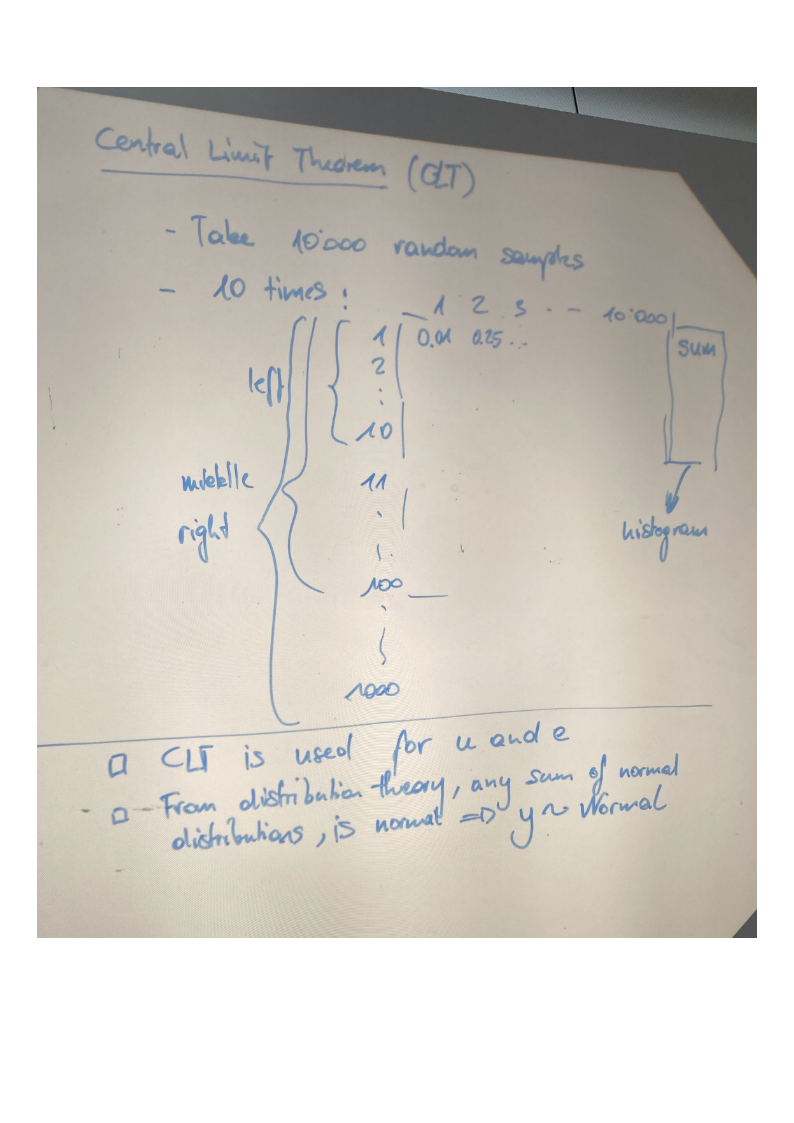 Central Limit Theorem (CLT)
- Take 10'000 random samples
- 10 times:
1 2 3 . - - 10'000
left
1 0.01 0.25 . .
sum
2
:
10
middle
11
right
histogram
100
1000
CLT is used for u and e
- From distribution theory, any sum of normal
distributions, is normal => y ~ Normal